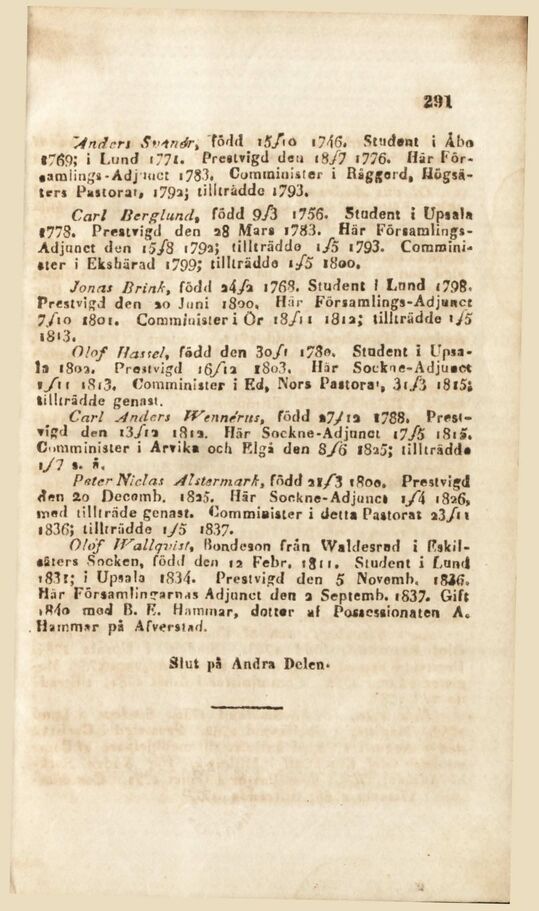 291
Anders Svanér, född 15/10 1746. Student i Åbo
1769; i Lund 1771. Prestvigd den 18/7 1776. Här För-
samlings-Adjunct 1783. Comminister i Råggerd, Högsä-
ters Pastorat, 1792; tillträdde 1793.
Carl Berglund, född 9/3 1756. Student i Upsala
1778. Prestvigd den 28 Mars 1783. Här Församlings-
Adjunct den 15/8 1792; tillträdde 1/5 1793. Commini-
ster i Ekshärad 1799; tillträdde 1/5 1800.
Jonas Brink, född 24/2 1768. Student i Lund 1798.
Prestvigd den 20 Juni 1800. Här Församlings-Adjunct
7/10 1801. Comminister i Ör 18/11 1812; tillträdde 1/5
1813.
Olof Hassel, född den 30/1 1780. Student i Upsa-
la 1802. Prestvigd 16/12 1803. Här Sockne-Adjunct
1/11 1813. Comminister i Ed, Nors Pastorat, 31/3 1815;
tillträdde genast.
Carl Anders Wennérus, född 27/12 1788. Prest-
vigd den 13/12 1812. Här Sockne-Adjunct 17/5 1815.
Comminister i Arvika och Elgå den 8/6 1825; tillträdde
1/7 s. å.
Peter Niclas Alstermark, född 21/3 1800. Prestvigd
den 20 Decemb. 1825. Här Sockne-Adjunct 1/4 1826,
med tillträde genast. Comminister i detta Pastorat 23/11
1836; tillträdde 1/5 1837.
Olof Wallqvist, Bondeson från Waldesrud i Eskil-
säters Socken, född den 12 Febr. 1811. Student i Lund
1831; i Upsala 1834. Prestvigd den 5 Novemb. 1836.
Här Församlingarnas Adjunct den 2 Septemb. 1837. Gift
1840 med B. E. Hammar, dotter af Possessionaten A.
Hammar på Afverstad.
Slut på Andra Delen.